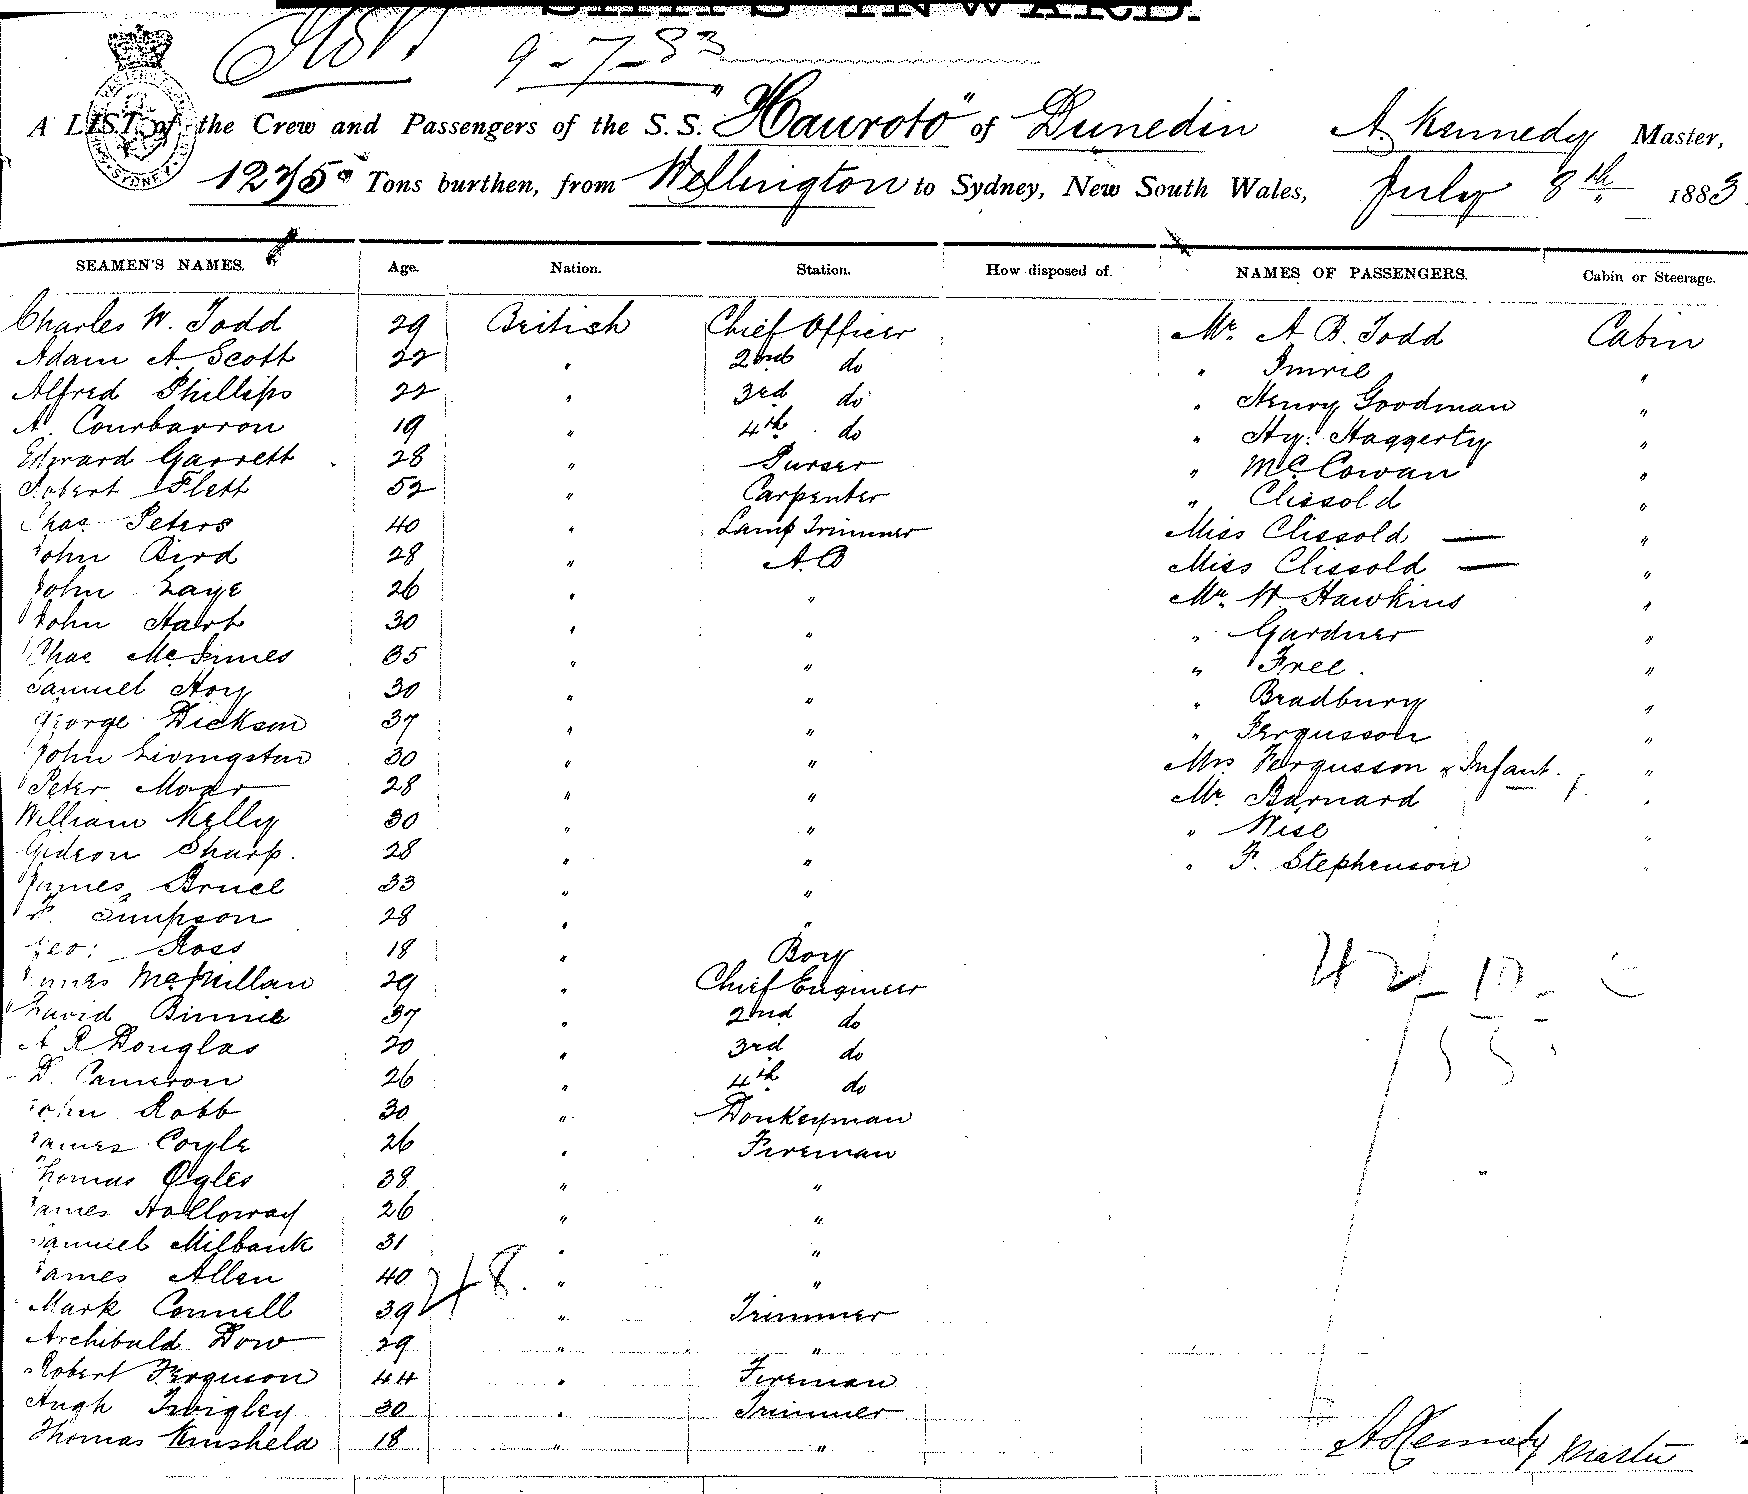 SHIPS INWARD.
9-7-83
A LIST of the Crew and Passengers of the S.S. "Hauroto" of Dunedin A. Kennedy Master,
1275 Tons burthen, from Wellington to Sydney, New South Wales, July 8th 1883
SEAMEN'S NAMES. Age. Nation. Station. How disposed of. NAMES OF PASSENGERS. Cabin or Steerage.
Charles W. Todd 29 British Chief Officer Mr. A. B. Todd Cabin
Adam A. Scott 22 " 2nd do " Imrie "
Alfred Phillips 22 " 3rd do " Henry Goodman "
A. Courbarron 19 " 4th do " Hy: Haggerty "
Edward Garrett 28 " Purser " McCowan "
Robert Flett 52 " Carpenter " Clissold "
Chas Peters 40 " Lamp Trimmer Miss Clissold — "
John Bird 28 " A.B Miss Clissold — "
John Laye 26 " " Mr. W Hawkins "
John Hart 30 " " " Gardner "
Chas McInnes 35 " " " Free "
Samuel Hoy 30 " " " Bradbury "
George Dickson 37 " " " Fergusson "
John Livingston 30 " " Mrs Fergusson & Infant. "
Peter Moar 28 " " Mr. Barnard "
William Kelly 30 " " " Wise "
Gideon Sharp. 28 " " " F. Stephenson "
James Bruce 33 " "
Simpson 28 " "
Geo: Ross 18 " Boy
James McMillan 29 " Chief Engineer
David Binnie 37 " 2nd do
A R Douglas 20 " 3rd do
D. Cameron 26 " 4th do
John Robb 30 " Donkeyman
James Coyle 26 " Fireman
Thomas Ogles 38 " "
James Holloway 26 " "
Samuel Milbank 31 " "
James Allen 40 " "
Mark Connell 39 " Trimmer
Archibald Dow 29 " "
Robert Ferguson 44 " Fireman
Hugh Twigley 30 " Trimmer
Thomas Kinsheld 18 " "
A Kennedy Master